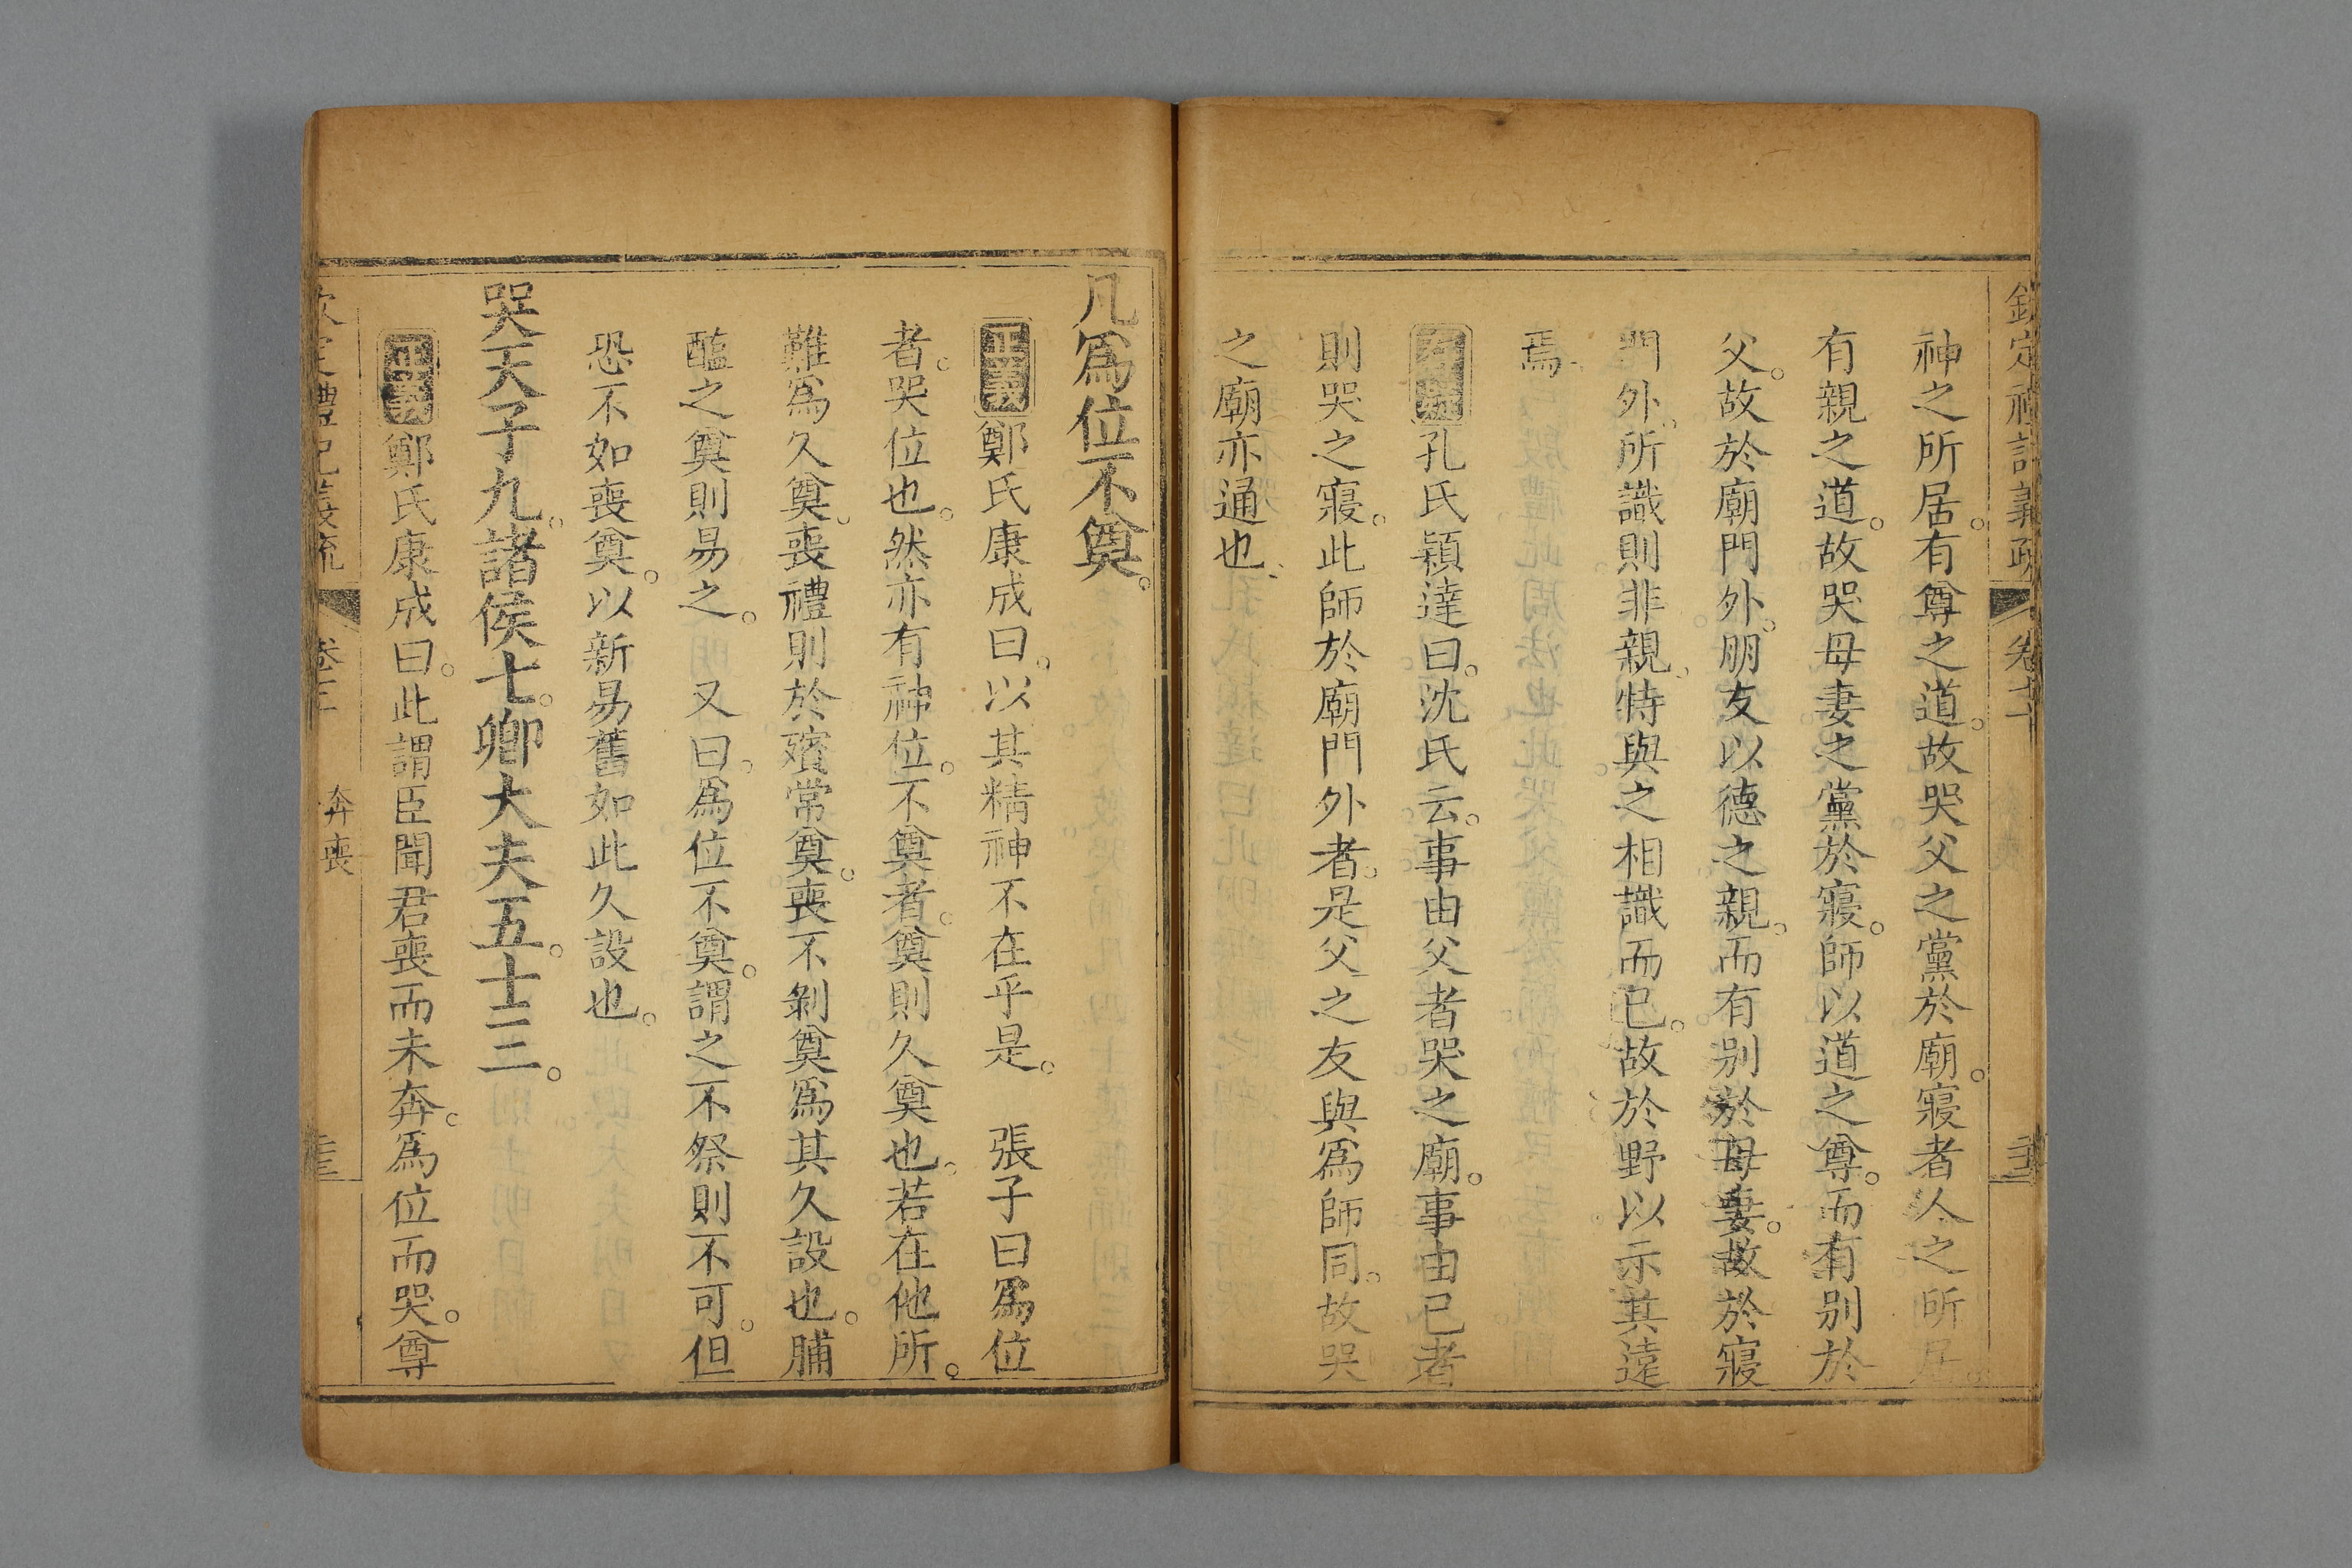 神之所居。有尊之道。故哭父之黨於廟。寢者人之所居。
有親之道。故哭母妻之黨於寢。師以道之尊。而有別於
父。故於廟門外。朋友以德之親。而有別於母妻。故於寢
門外。所識則非親。特與之相識而已。故於野以示其遠
焉。
孔氏穎達曰。沈氏云。事由父者哭之廟。事由己者
則哭之寢。此師於廟門外者。是父之友與為師同。故哭
之廟亦通也。
凡爲位不奠。
正義鄭氏康成曰。以其精神不在乎是。 張子曰爲位
者。哭位也。然亦有神位。不奠者。奠則久奠也。若在他所。
難爲久奠。喪禮則於殯常奠。喪不剝奠爲其久設也。脯
醢之奠則易之。 又曰。爲位不奠。謂之不祭則不可。但
恐不如喪奠。以新易舊如此久設也。
哭天子九。諸侯七。卿大夫五。士三。
正義鄭氏康成曰。此謂臣聞君喪而未奔。爲位而哭。尊
奔喪